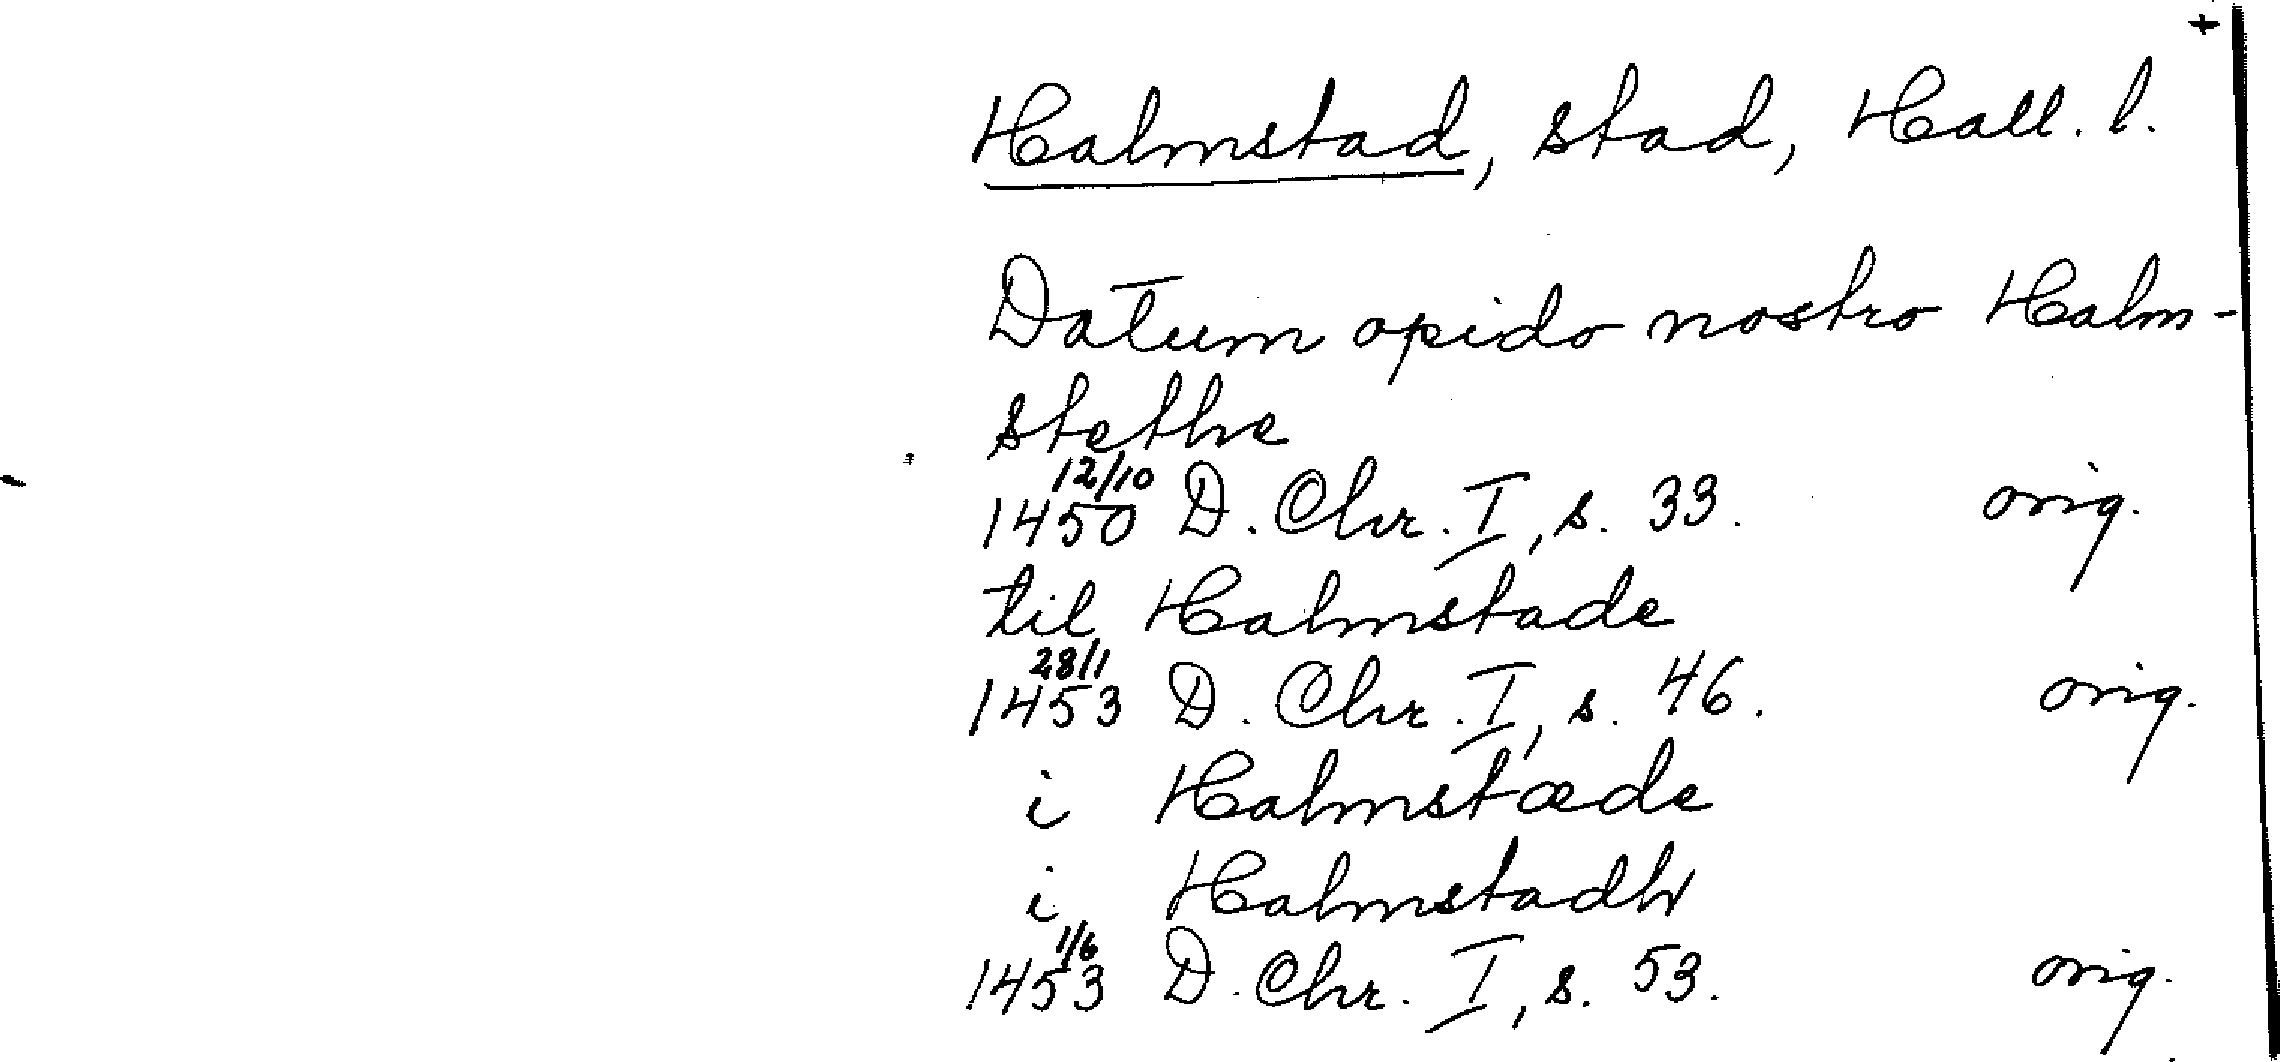 +
Halmstad, stad, Hall. l.
Datum opido nostro Halm-
stethe
12/10
1450 D. Chr. I, s. 33. orig.
til Halmstade
28/1
1453 D. Chr. I, s. 46. orig.
i Halmstæde
i Halmstadh
1/6
1453 D. Chr. I, s. 53. orig.